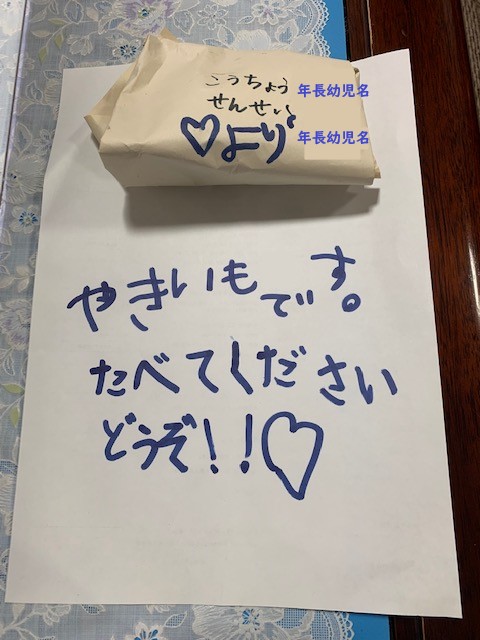 こうちょう 年長幼児名
せんせい
♡より 年長幼児名
やきいもです。
たべてください
どうぞ!!♡